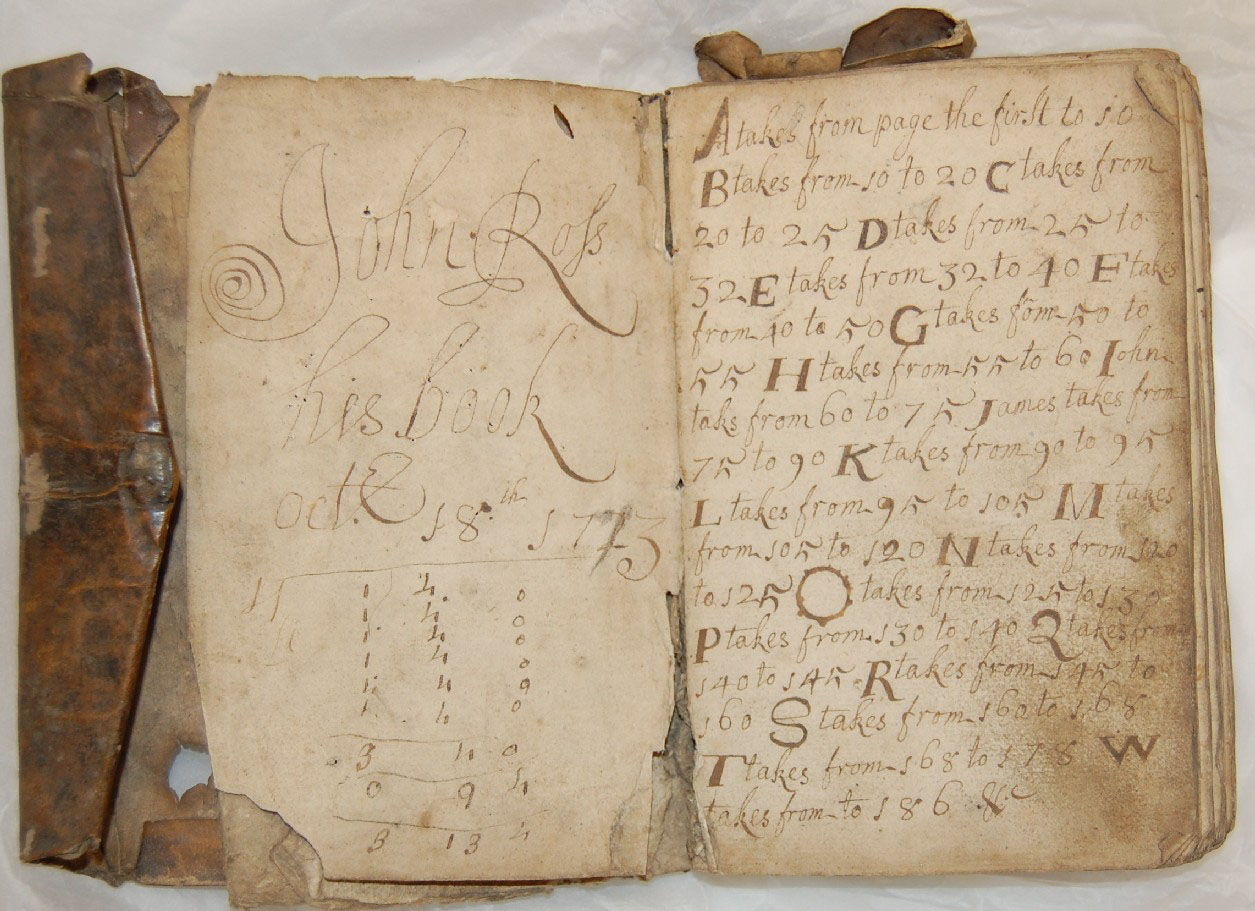 John Ross
his book
18th 1773
1 4 0
1 4 0
1 4 0
1 4 0
1 4 0
1 4 0
3 4 0
0 9 4
3 13 4
A takes from page the first to 10
B takes from 10 to 20 C takes from
20 to 25 D takes from 25 to
32 E takes from 32 to 40 F takes
from 40 to 50 G takes fom 50 to
55 H takes from 55 to 60 John
taks from 60 to 75 James takes from
75 to 90 K takes from 90 to 95
L takes from 95 to 105 M takes
from 105 to 120 N takes from 120
to 125 O takes from 125 to 130
P takes from 130 to 140 Q takes from
140 to 145 R takes from 145 to
160 S takes from 160 to 168
T takes from 168 to 178 W
takes from to 186 &c